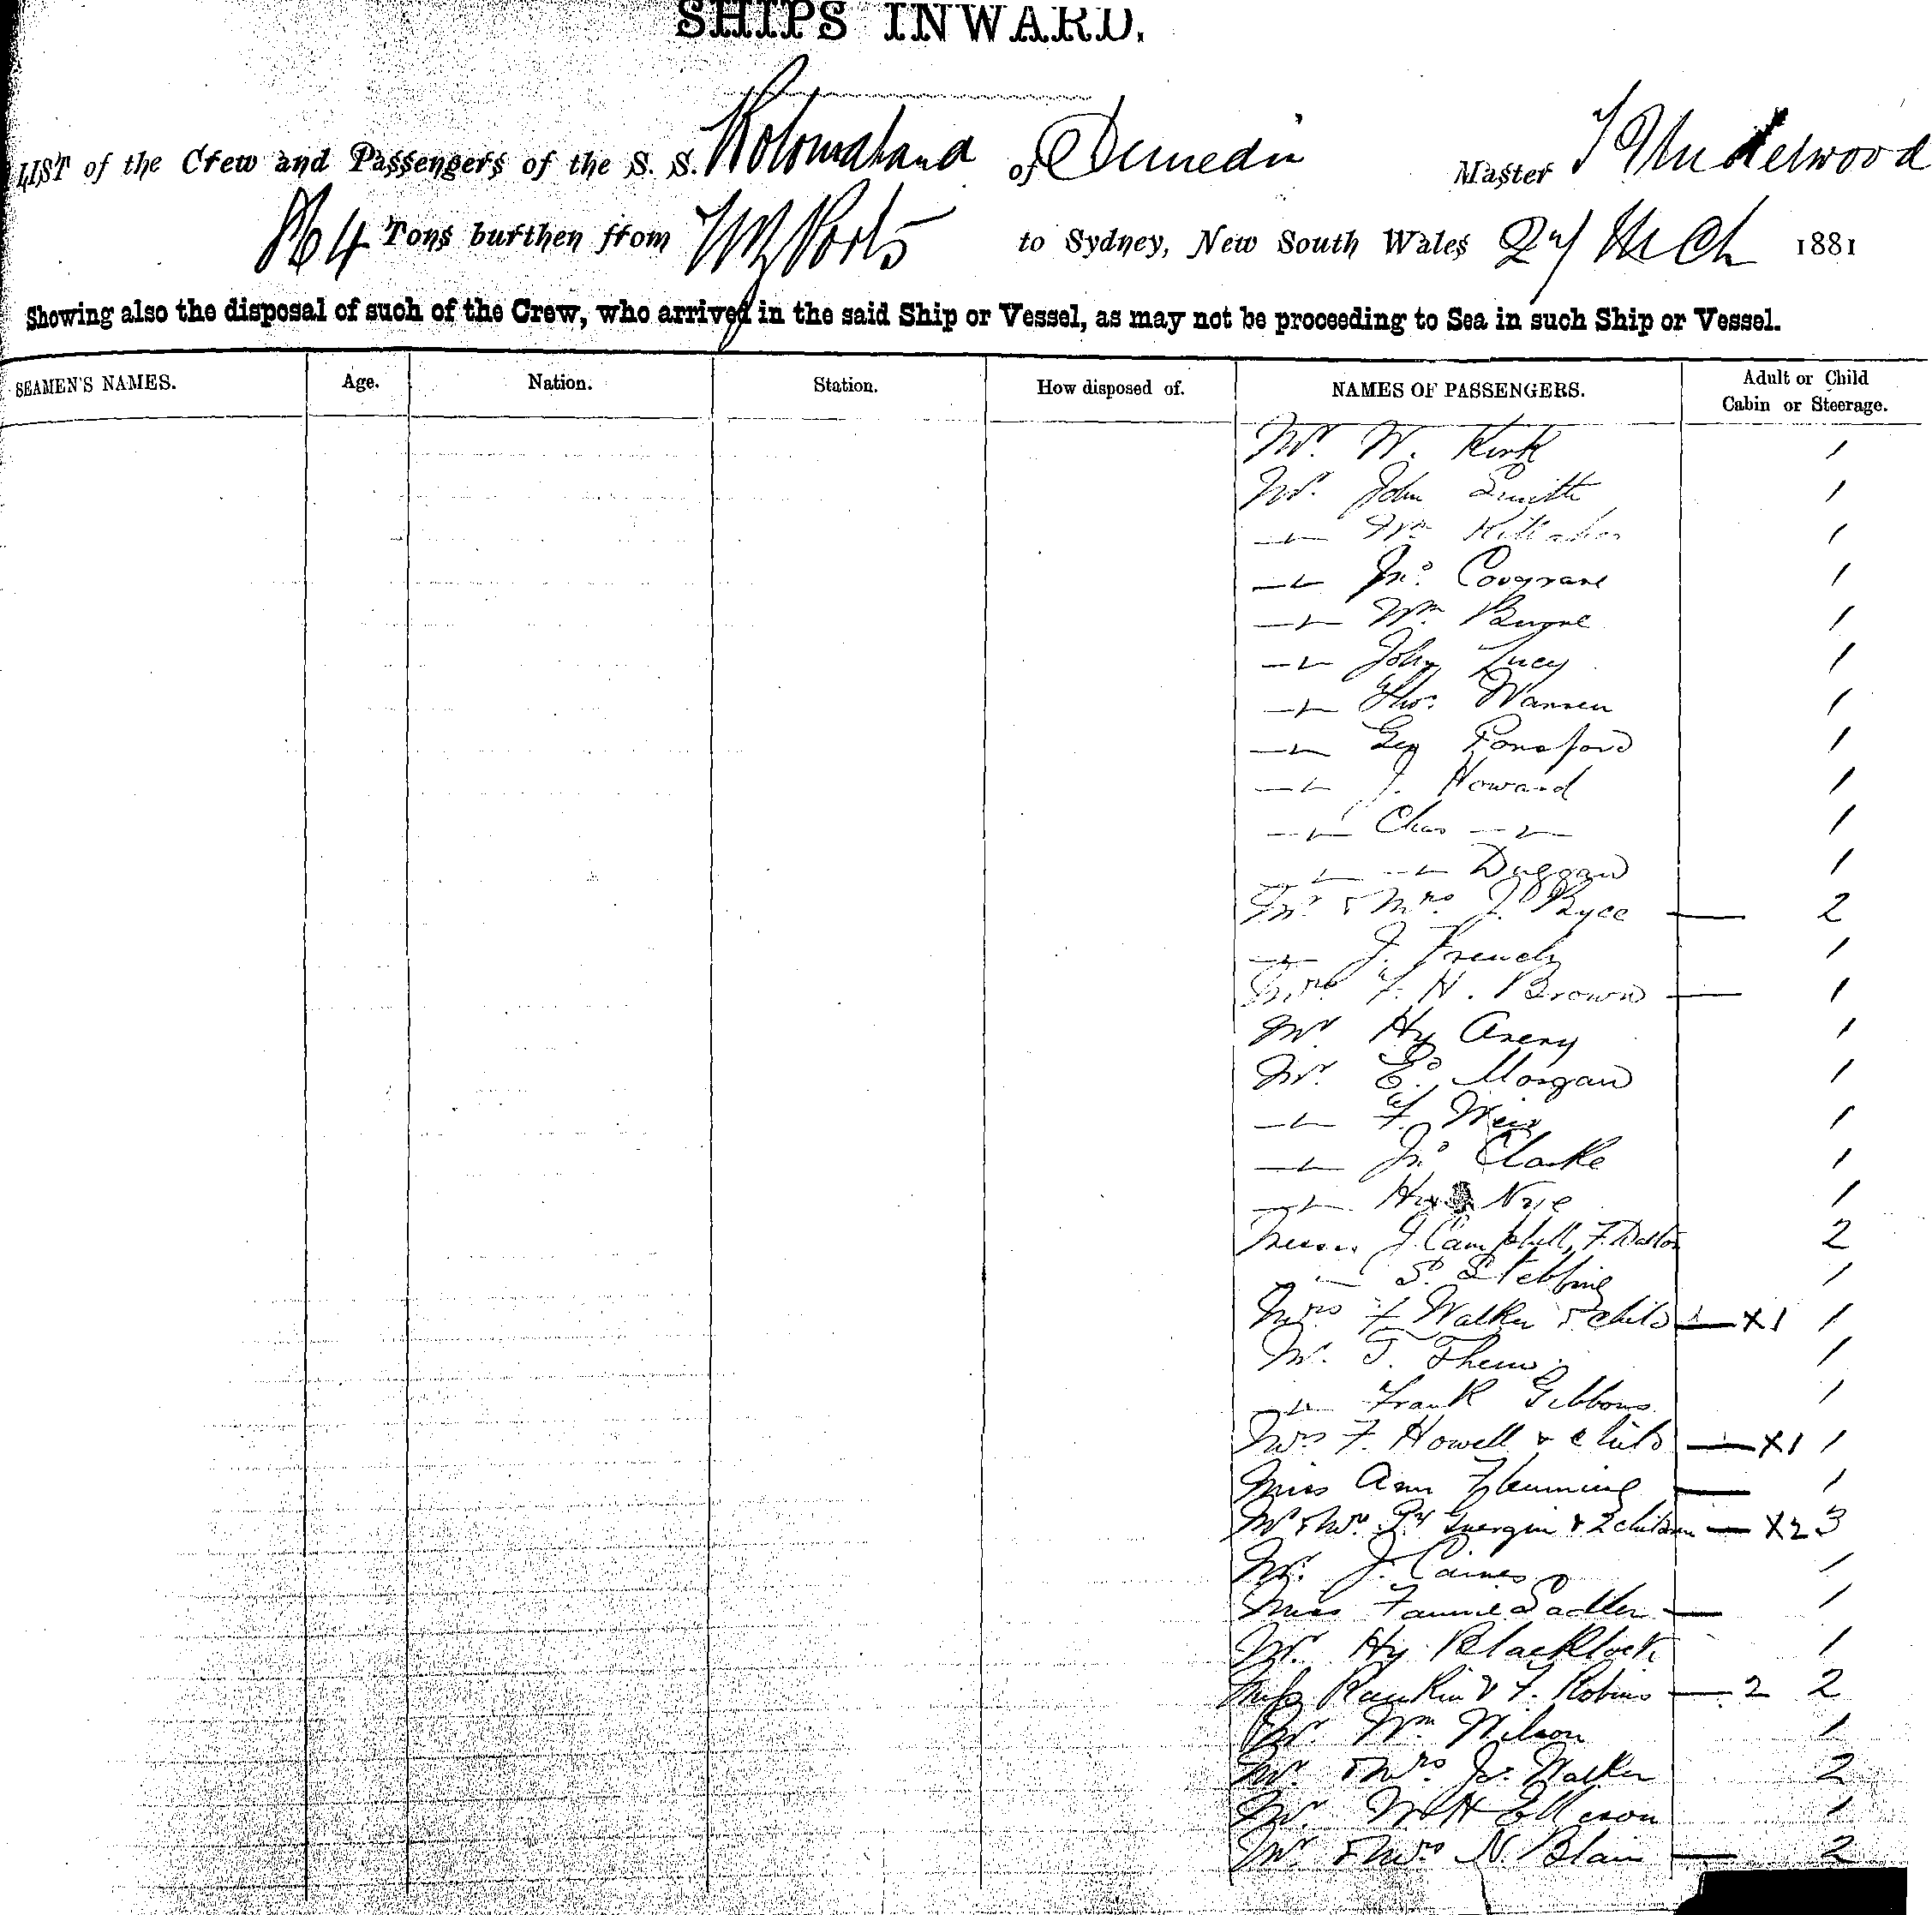 SHIPS INWARD.
LIST of the Crew and Passengers of the S. S. Rotomahana of Dunedin Master T Underwood
864 Tons burthen from NZ Ports to Sydney, New South Wales 24 Mch 1881
Showing also the disposal of such of the Crew, who arrived in the said Ship or Vessel, as may not be proceeding to Sea in such Ship or Vessel.
SEAMEN'S NAMES. Age. Nation. Station. How disposed of. NAMES OF PASSENGERS. Adult or Child Cabin or Steerage.
Mr. W. Kirk 1
Mr. John Smith 1
Wm 1
Jno. Cosgrave 1
Wm. Byrne 1
John Lucy 1
Thos. Warren 1
Geo Ponsford 1
J. Howard 1
Chas 1
Duggan 1
Mr & Mrs. J. Bryce — 2
J. French 1
Mrs F. H. Brown — 1
Mr Hy Avery 1
Mr. Ed. Morgan 1
F. Weir 1
Jno Clarke 1
Hy Nye 1
Messrs J. Campbell, F. Dalton 2
S. Stebbing 1
Mrs F Walker & child — X1 1
Mr. T. 1
Frank Gibbons 1
Mrs F. Howell & child — X1 1
Miss Ann Flemming — 1
Mr & Mrs Guergin & 2 children — X2 3
Mr. J. Caines 1
Miss Fannie Sadler — 1
Mr. Hy Blacklock 1
Miss Rankin & F. Robins — 2 2
Mr. Wm Wilson 1
Mr. & Mrs. Jas. Walker 2
Mr. W H Ellison 1
Mr & Mrs N. Blair — 2